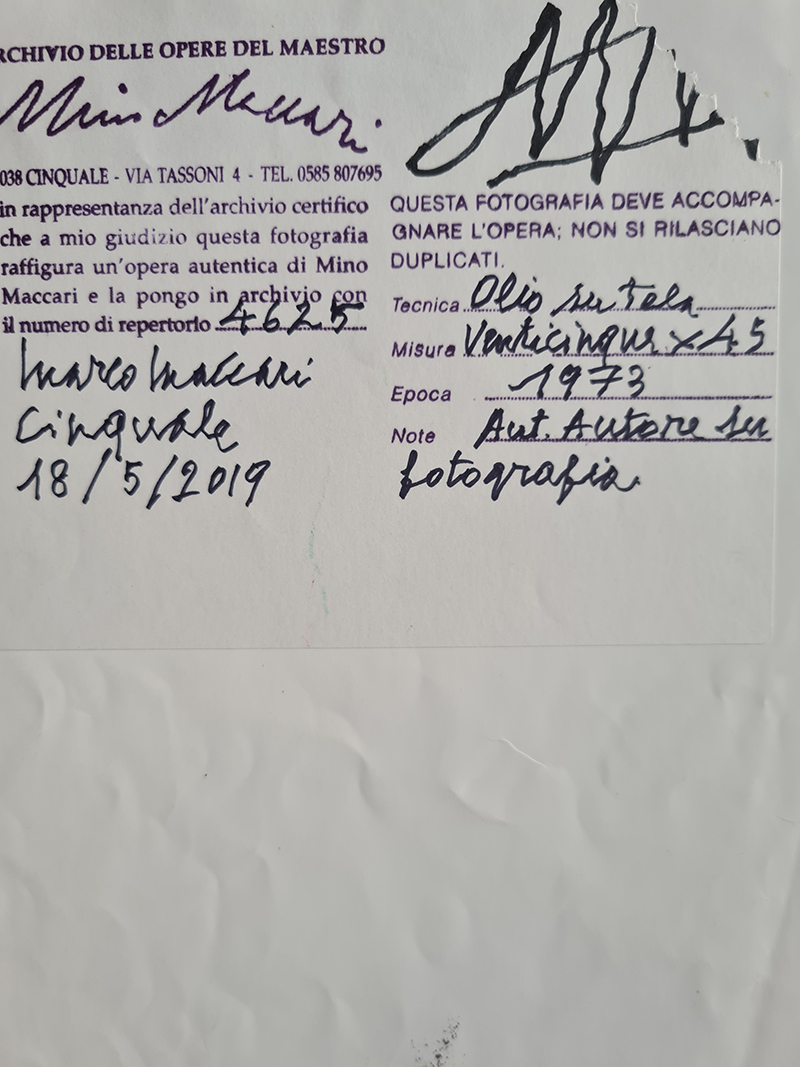 RCHIVIO DELLE OPERE DEL MAESTRO
Mino Maccari
038 CINQUALE - VIA TASSONI 4 - TEL. 0585 807695
in rappresentanza dell'archivio certifico
che a mio giudizio questa fotografia
raffigura un'opera autentica di Mino
Maccari e la pongo in archivio con
il numero di repertorio 4625
Marco Maccari
Cinquale
18/5/2019
QUESTA FOTOGRAFIA DEVE ACCOMPA-
GNARE L'OPERA; NON SI RILASCIANO
DUPLICATI.
Tecnica Olio su Tela
Misura Venticinque x 45
Epoca 1973
Note Aut. Autore su
fotografia.